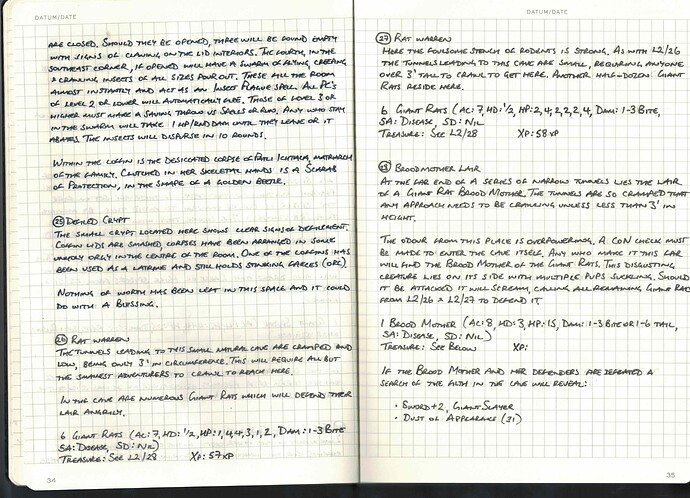 DATUM/DATE
ARE CLOSED. SHOULD THEY BE OPENED, THREE WILL BE FOUND EMPTY
WITH SIGNS OF CLAWING ON THE LID INTERIORS. THE FOURTH, IN THE
SOUTHEAST CORNER, IF OPENED WILL HAVE A SWARM OF FLYING, CREEPING
& CRAWLING INSECTS OF ALL SIZES POUR OUT. THESE FILL THE ROOM
ALMOST INSTANTLY AND ACT AS AN INSECT PLAGUE SPELL. ALL PC'S
OF LEVEL 2 OR LOWER WILL AUTOMATICALLY FLEE. THOSE OF LEVEL 3 OR
HIGHER MUST MAKE A SAVING THROW VS SPELLS OR RUN. ANY WHO STAY
IN THE SWARM WILL TAKE 1 HP/RND DAM UNTIL THEY LEAVE OR IT
ABATES. THE INSECTS WILL DISPURSE IN 10 ROUNDS.
WITHIN THE COFFIN IS THE DESICCATED CORPSE OF MATRIARCH
OF THE FAMILY. CLUTCHED IN HER SKELETAL HANDS IS A SCARAB
OF PROTECTION, IN THE SHAPE OF A GOLDEN BEETLE.
25 DEFILED CRYPT
THE SMALL CRYPT LOCATED HERE SHOWS CLEAR SIGNS OF DEFILEMENT.
COFFIN LIDS ARE SMASHED, CORPSES HAVE BEEN ARRANGED IN SOME
UNHOLY ORGY IN THE CENTRE OF THE ROOM. ONE OF THE COFFINS HAS
BEEN USED AS A LATRINE AND STILL HOLDS STINKING FAECES (ORC)
NOTHING OF WORTH HAS BEEN LEFT IN THIS SPACE AND IT COULD
DO WITH A BLESSING.
26 RAT WARREN
THE TUNNELS LEADING TO THIS SMALL NATURAL CAVE ARE CRAMPED AND
LOW, BEING ONLY 3' IN CIRCUMFERENCE. THIS WILL REQUIRE ALL BUT
THE SMALLEST ADVENTURERS TO CRAWL TO REACH HERE.
IN THE CAVE ARE NUMEROUS GIANT RATS WHICH WILL DEFEND THEIR
LAIR ANGRILY.
6 GIANT RATS (AC:7, HD:1/2, HP:1,4,4,3,1,2, DAM:1-3 BITE
SA: DISEASE, SD: NIL)
TREASURE: SEE L2/28 XP: 57XP
34
DATUM/DATE
27 RAT WARREN
HERE THE FOULSOME STENCH OF RODENTS IS STRONG. AS WITH L2/26
THE TUNNELS LEADING TO THIS CAVE ARE SMALL, REQUIRING ANYONE
OVER 3' TALL TO CRAWL TO GET HERE. ANOTHER HALF-DOZEN GIANT
RATS RESIDE HERE.
6 GIANT RATS (AC:7, HD:1/2, HP:2,4,2,2,2,4, DAM:1-3 BITE,
SA: DISEASE, SD: NIL
TREASURE: SEE L2/28 XP: 58XP
28 BROODMOTHER LAIR
AT THE FAR END OF A SERIES OF NARROW TUNNELS LIES THE LAIR
OF A GIANT RAT BROOD MOTHER. THE TUNNELS ARE SO CRAMPED THAT
ANY APPROACH NEEDS TO BE CRAWLING UNLESS LESS THAN 3' IN
HEIGHT.
THE ODOUR FROM THIS PLACE IS OVERPOWERING. A CON CHECK MUST
BE MADE TO ENTER THE CAVE ITSELF. ANY WHO MAKE IT THIS FAR
WILL FIND THE BROOD MOTHER OF THE GIANT RATS. THIS DISGUSTING
CREATURE LIES ON ITS SIDE WITH MULTIPLE PUPS SUCKLING. SHOULD
IT BE ATTACKED IT WILL SCREAM, CALLING ALL REMAINING GIANT RAT
FROM L2/26 & L2/27 TO DEFEND IT
1 BROOD MOTHER (AC:8, HD:3, HP:15, DAM:1-3 BITE OR 1-6 TAIL,
SA: DISEASE, SD: NIL)
TREASURE: SEE BELOW XP:
IF THE BROOD MOTHER AND HER DEFENDERS ARE DEFEATED A
SEARCH OF THE FILTH IN THE CAVE WILL REVEAL:
· SWORD +2, GIANT SLAYER
· DUST OF APPEARANCE (31)
35